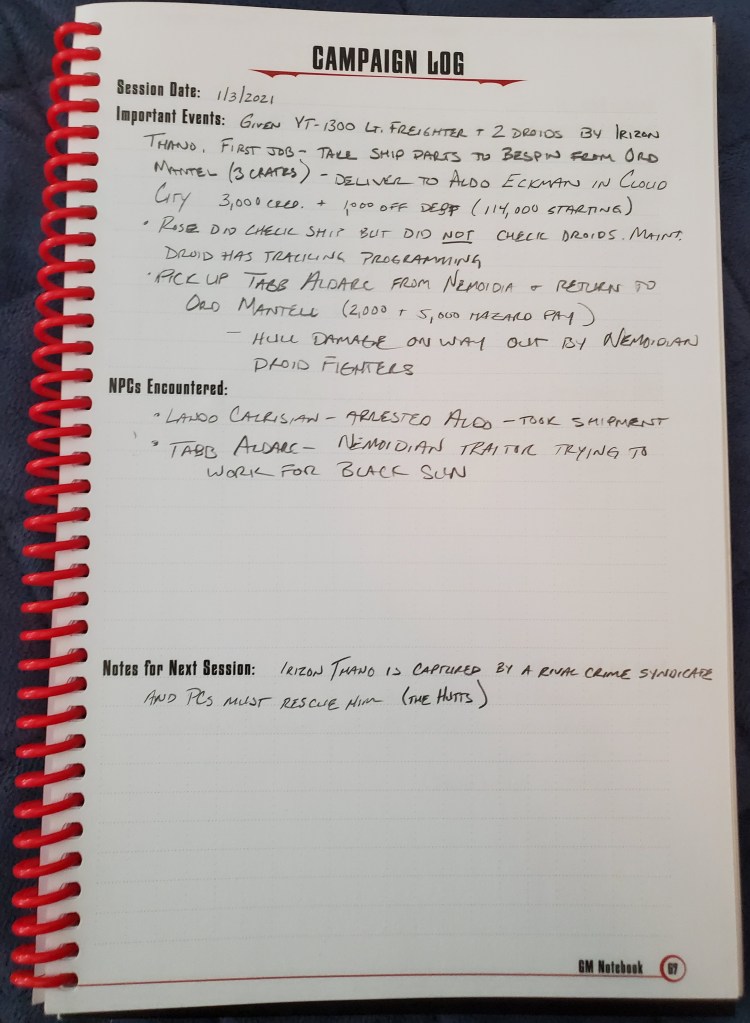 CAMPAIGN LOG
Session Date: 1/3/2021
Important Events: GIVEN YT-1300 LT. FREIGHTER + 2 DROIDS BY IRIZON
THANO. FIRST JOB - TAKE SHIP PARTS TO BESPIN FROM ORD
MANTEL (3 CRATES) - DELIVER TO ALDO ECKMAN IN CLOUD
CITY 3,000 CRED. + 1,000 OFF DEBT (114,000 STARTING)
• ROSE DID CHECK SHIP BUT DID NOT CHECK DROIDS. MAINT.
DROID HAS TRACKING PROGRAMMING
• PICK UP TABB ALDARC FROM NEMOIDIA & RETURN TO
ORD MANTELL (2,000 + 5,000 HAZARD PAY)
- HULL DAMAGE ON WAY OUT BY NEMOIDIAN
DROID FIGHTERS
NPCs Encountered:
• LANDO CALRISIAN - ARRESTED ALDO - TOOK SHIPMENT
• TABB ALDARC - NEMOIDIAN TRAITOR TRYING TO
WORK FOR BLACK SUN
Notes for Next Session: IRIZON THANO IS CAPTURED BY A RIVAL CRIME SYNDICATE
AND PCS MUST RESCUE HIM (THE HUTTS)
GM Notebook 67